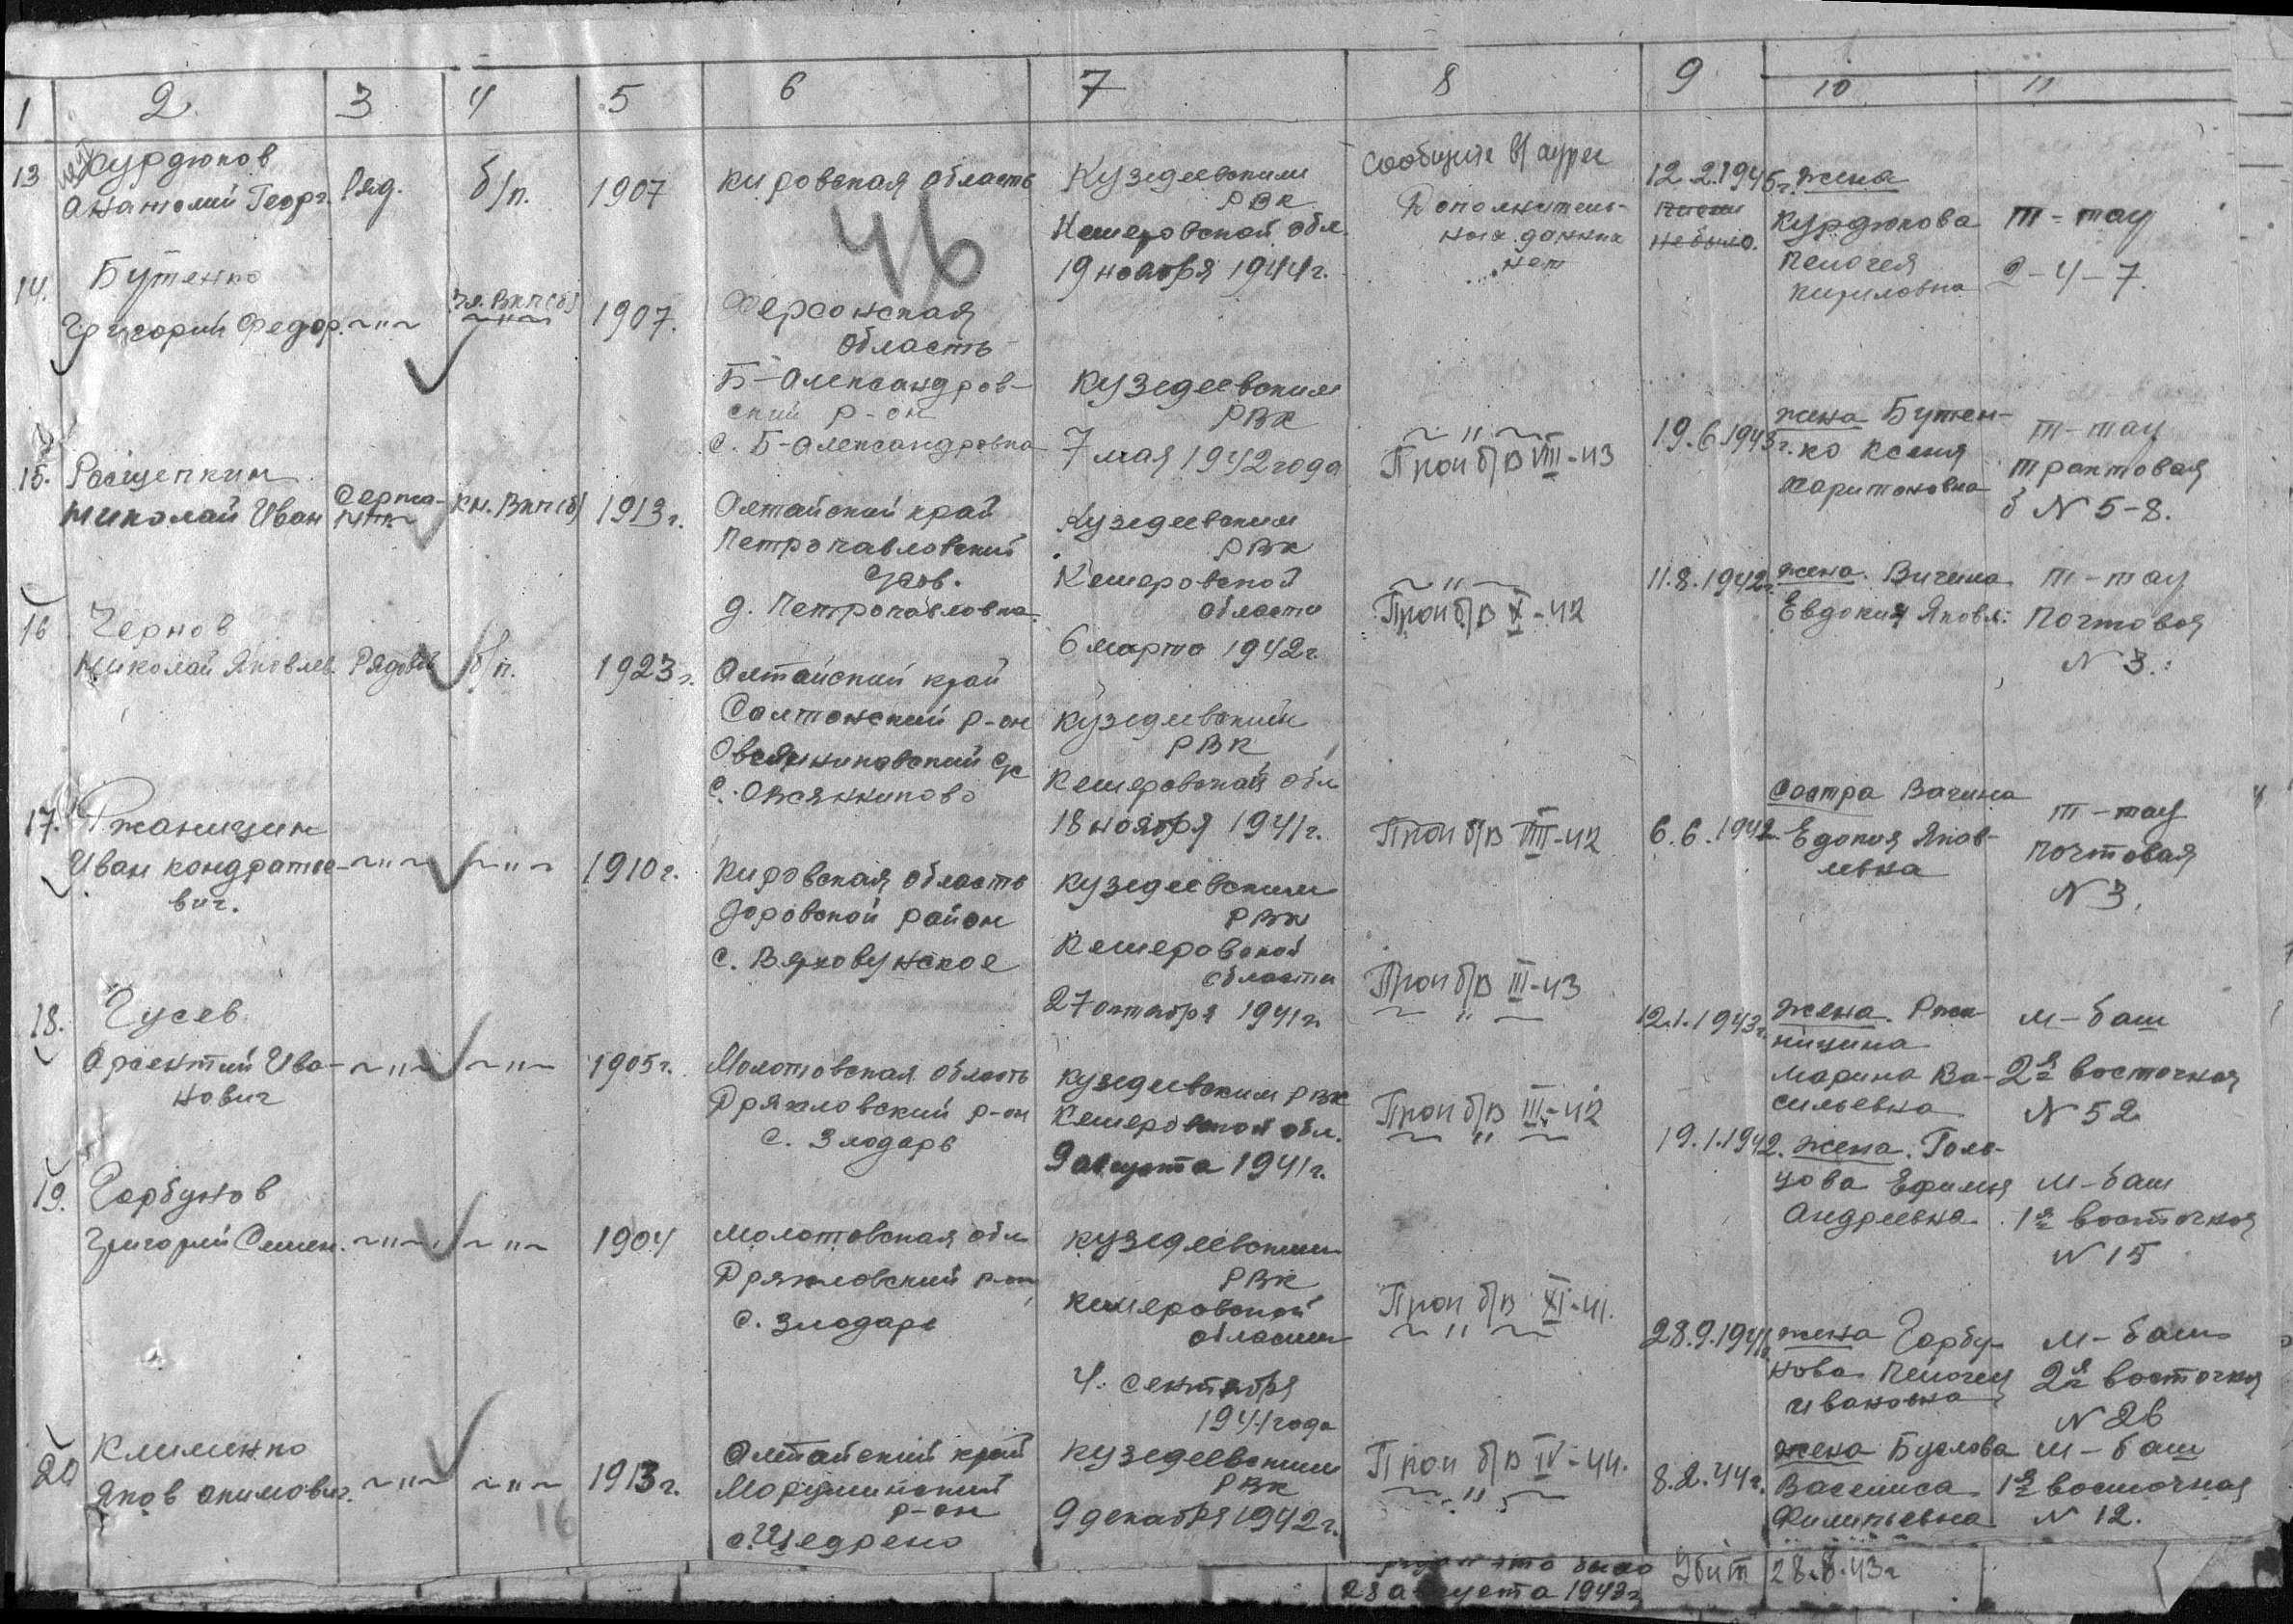 1 2 3 4 5 6 7 8 9 10 11
13 Курдюков
Анатолий Георг. Ряд. б/п. 1907
Кировская область
Кузедеевским
РВК
Кемеровской обл.
19 ноября 1944г.
Сообщите в/ адрес
Дополнитель-
ных данных
нет
12.2.1945г.
писем
небыло.
жена
Курдюкова
Пелогея
Кириловна
т-тау
2-4-7.
46
14. Бутенко
Григорий Федор. ~"~ Чл. ВКП(б) ~"~ 1907.
Херсонская
область
Б-Александров-
ский р-он
с. Б-Александровка
Кузедеевским
РВК
7 мая 1942 года
~"~
Проп б/в VIII-43
19.6.1943г.
жена Бутен-
ко Ксения
Харитоновна
т-тау
трактовая
б N 5-8.
15. Расщепкин
Николай Иван Сержа-
нт Кн. ВКП(б) 1913г.
Алтайский край
Петропавловский
д. Петропавловка
Кузедеевским
РВК
Кемеровской
области
6 марта 1942г.
~"~
Проп б/в X-42
11.8.1942г.
жена. Вичина
Евдокия Яковл.
т-тау
Почтовая
N 3.
16 Чернов
Николай Яковлев. Рядовой б/п. 1923г.
Алтайский край
Солтонский р-он
Овсянниковский с/с
с. Овсянниково
Кузедеевским
РВК
Кемеровской обл
18 ноября 1941г.
Проп б/в VIII-42
6.6.1942.
Состра Вачина
Едокия Яков-
левна
т-тау
Почтовая
N 3.
17. Ржаницин
Иван Кондратье-
вич. ~"~ ~"~ 1910г.
Кировская область
Даровской район
Кузедеевским
РВК
Кемеровской
области
27 октября 1941г
Проп б/в III-43
~"~
12.1.1943г.
жена. Ржа-
ницина
Марина Ва-
сильевна
м-баш
2я восточная
N 52
18. Гусев
Арсентий Ива-
нович ~"~ ~"~ 1905г.
Молотовская область
с. Злодарь
Кузедеевским РВК
Кемеровской обл.
9 августа 1941г.
Проп б/в III-42
~"~
19.1.1942.
жена. Голо-
зова Ефимия
Андреевна
м-баш
1я восточная
N 15
19. Горбунов
Григорий Семен. ~"~ ~"~ 1904
Молотовская обл
с. Злодарь
Кузедеевским
РВК
Кемеровской
области
4. сентября
1941 года
Проп б/в XI-41.
~"~
28.9.1941г
жена Горбу-
нова Пелогея
Ивановна
м-баш
2я восточная
N 26
20 Клименко
Яков Акимович. ~"~ ~"~ 1913г.
16
Алтайский край
Марушинский
р-он
с. Щедрено
Кузедеевским
РВК
9 декабря 1942г.
Проп б/в IV-44.
~"~
8.2.44г.
жена Буслова
Василиса
Филипьевна
м-баш
1я восточная
N 12.
это было
28 августа 1943г
Убит 28.8.43г